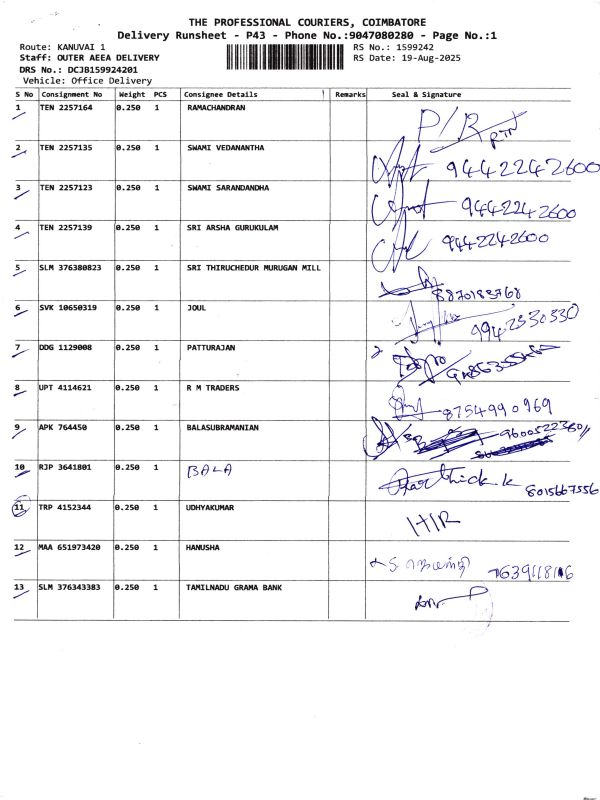 THE PROFESSIONAL COURIERS, COIMBATORE
Delivery Runsheet - P43 - Phone No.:9047080280 - Page No.:1
Route: KANUVAI 1 RS No.: 1599242
Staff: OUTER AEEA DELIVERY RS Date: 19-Aug-2025
DRS No.: DCJB159924201
Vehicle: Office Delivery
S No Consignment No Weight PCS Consignee Details Remarks Seal & Signature
1 TEN 2257164 0.250 1 RAMACHANDRAN P/R RTN
2 TEN 2257135 0.250 1 SWAMI VEDANANTHA 94422242600
3 TEN 2257123 0.250 1 SWAMI SARANDANDHA 9442242600
4 TEN 2257139 0.250 1 SRI ARSHA GURUKULAM 9442242600
5 SLM 376380823 0.250 1 SRI THIRUCHEDUR MURUGAN MILL 8870183768
6 SVK 10650319 0.250 1 JOUL 9942330330
7 DDG 1129008 0.250 1 PATTURAJAN
8 UPT 4114621 0.250 1 R M TRADERS 8754990969
9 APK 764450 0.250 1 BALASUBRAMANIAN
10 RJP 3641801 0.250 1 BALA Karthick.k 8015667556
11 TRP 4152344 0.250 1 UDHYAKUMAR H/R
12 MAA 651973420 0.250 1 HANUSHA
13 SLM 376343383 0.250 1 TAMILNADU GRAMA BANK